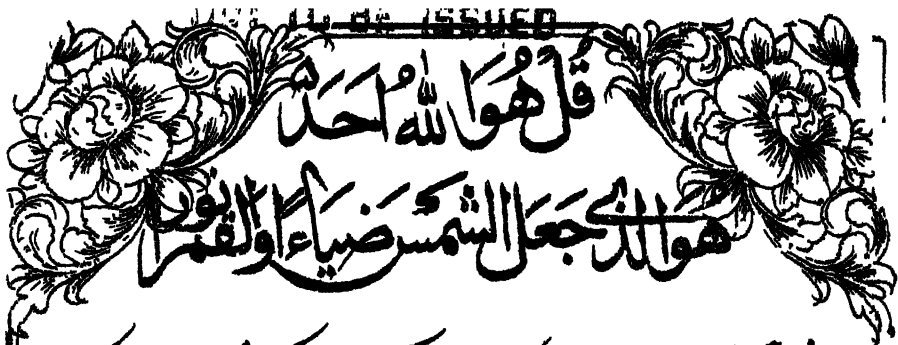 NOT TO BE ISSUED
قُلْ هُوَ اللّٰهُ اَحَدٌ
هُوَ الَّذِي جَعَلَ الشَّمْسَ ضِيَاءً وَالْقَمَرَ نُورًا